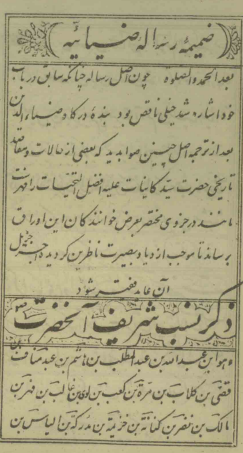 ضمیمه رساله ضیائیه
بعد الحمد والصلوة چون اصل رساله چنانکه سابق در باب
خود اشاره شد خیلی ناقص بود بندهٔ درگاه ضیاء الدین
بعد از ترجمه اصل چنین صوابدید که بعضی از حالات و مقاصد
تاریخی حضرت سید کائنات علیه افضل التحیات را فهرست
مانند در جزوی مختصر بعرض خوانندکان این اوراق
برساند تا موجب ازدیاد بصیرت ناظرین کردیده اجر جمیل
آن عاید فقیر شود
ذکر نسب شریف آنحضرت
وهو ابن عبد الله بن عبد المطلب بن هاشم بن عبد مناف بن
قصی بن کلاب بن مرة بن کعب بن لوی بن غالب بن فهر بن
مالک بن نضر بن کنانة بن خزیمة بن مدرکة بن الیاس بن